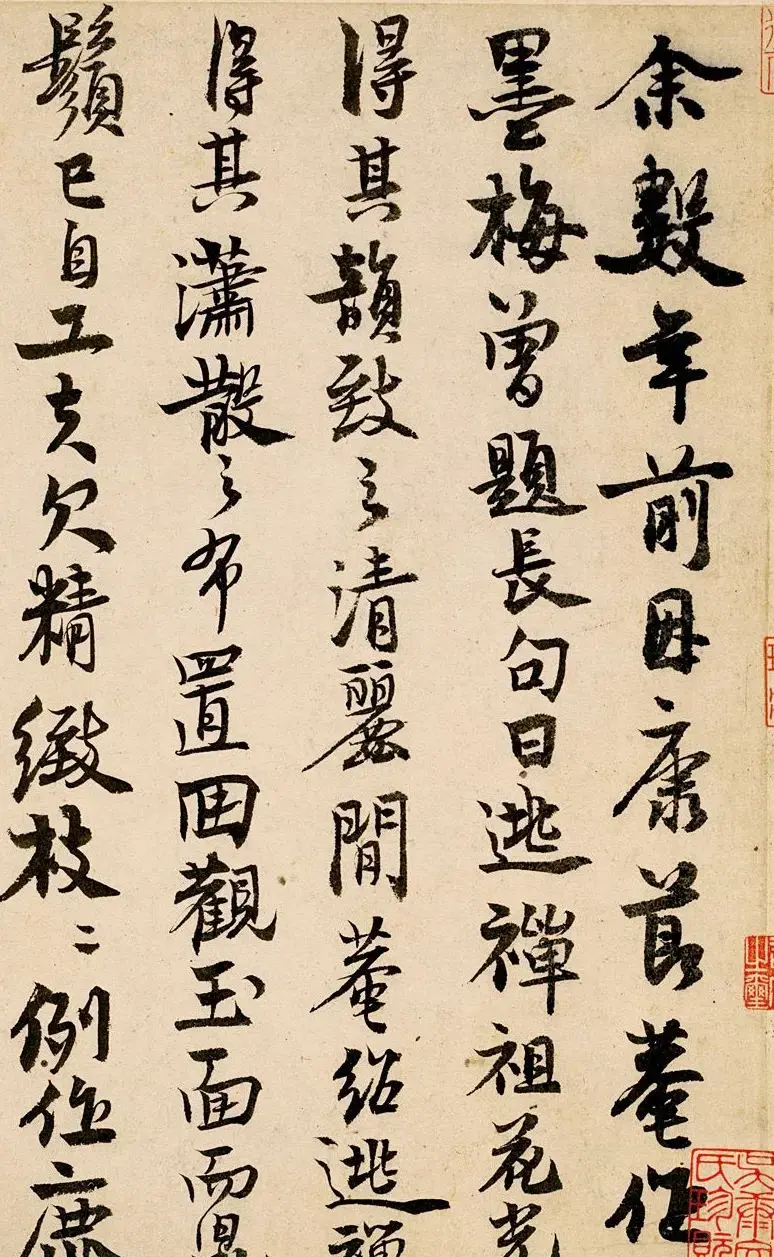 余數年前因康節菴作
墨梅曾題長句曰逃禪祖花光
得其韻致之清麗閒菴紹逃禪
得其瀟散之布置回觀玉面而鼻
鬚已自工夫欠精緻枝〻例作鹿